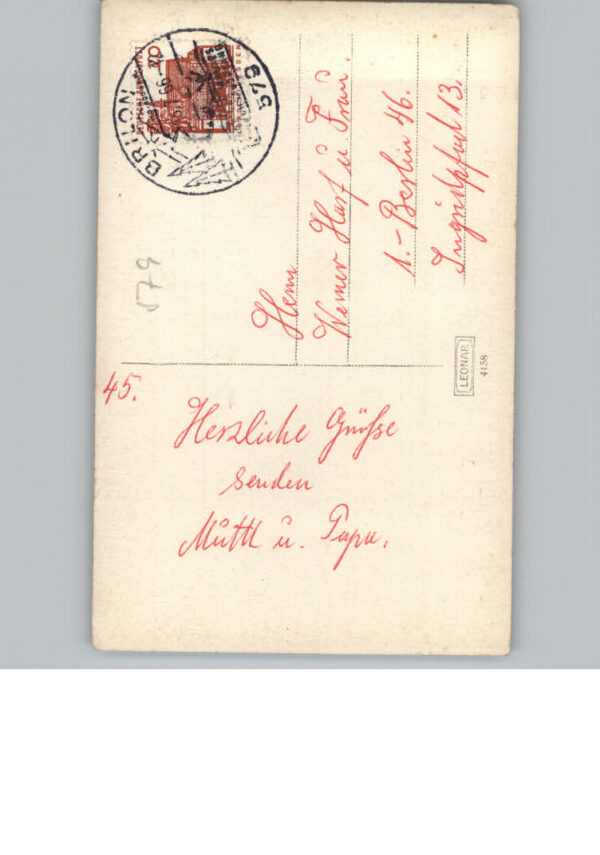 BRILON
579
20
579
Herrn
Werner Harf u Frau.
1.- Berlin 46.
13.
LEONAR
4138
45.
Herzliche Grüße
senden
Mutti u. Papa.